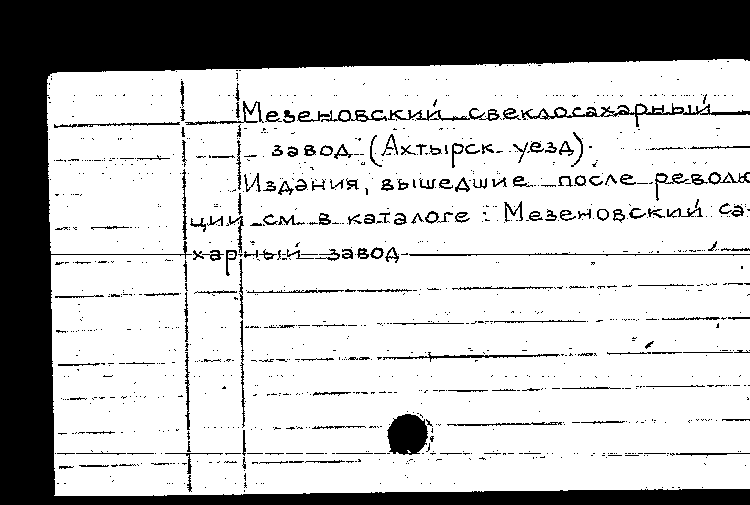 Мезеновский свеклосахарный
завод (Ахтырск. уезд).
Издания, вышедшие после револю-
ции см. в каталоге: Мезеновский са-
харный завод